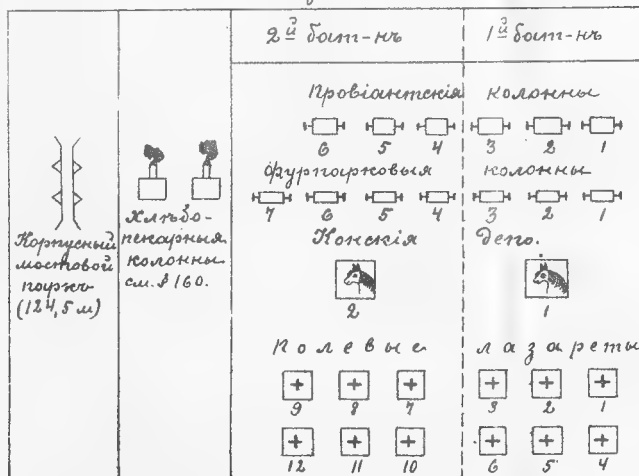 2й бат-нъ 1й бат-нъ
Провіантскія колонны
6 5 4 3 2 1
Фурпарковыя колонны
7 6 5 4 3 2 1
Конскія депо.
2 1
Полевые лазареты
9 8 7 3 2 1
12 11 10 6 5 4
Корпусный
мостовой
паркъ
(124,5 м)
Хлѣбо-
пекарныя
колонны
см. § 160.